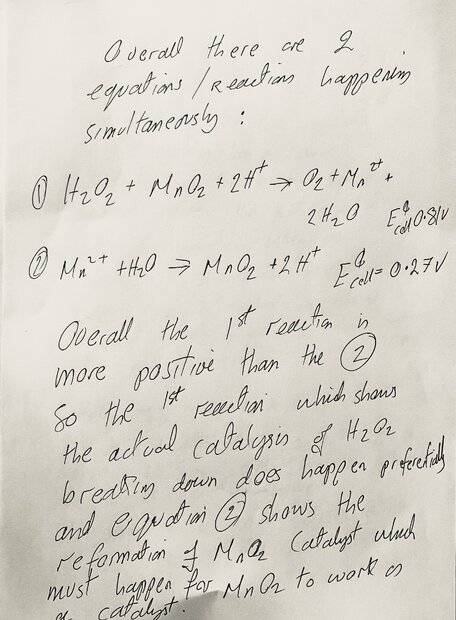 Overall there are 2
equations/reactions happening
simultaneously :
① H₂O₂ + MnO₂ + 2H⁺ → O₂ + Mn²⁺ +
2H₂O E⦵cell 0.81V
② Mn²⁺ + H₂O → MnO₂ + 2H⁺ E⦵cell = 0.27V
Overall the 1st reaction is
more positive than the ②
So the 1st reaction which shows
the actual catalysis of H₂O₂
breaking down does happen preferentially
and equation ② shows the
reformation of MnO₂ catalyst which
must happen for MnO₂ to work as
a catalyst.